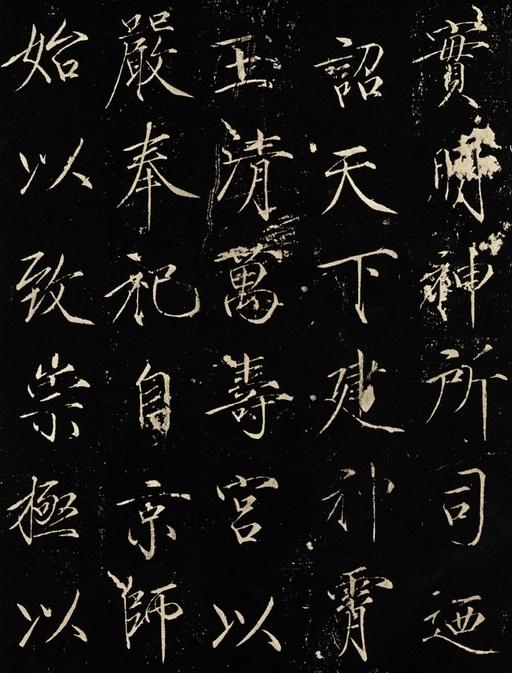 實明神所司迺
詔天下建神霄
玉清萬壽宮以
嚴奉祀自京師
始以致崇極以